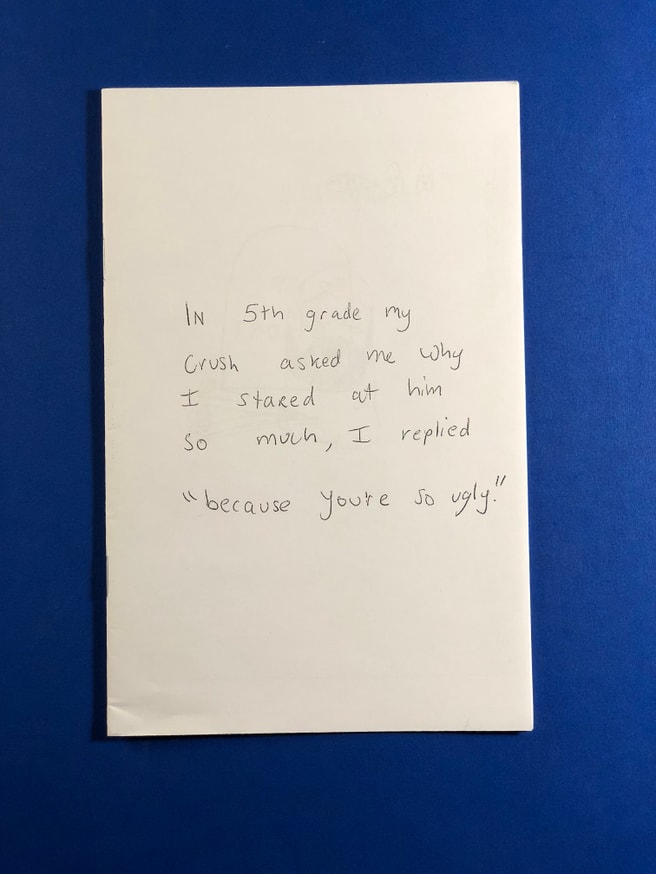 IN 5th grade my
Crush asked me why
I stared at him
So much, I replied
"because you're so ugly."